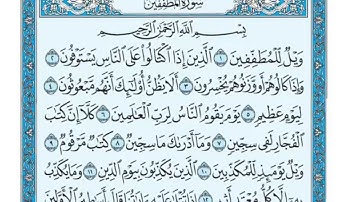 سُورَةُ المُطَفِّفِينَ
بِسْمِ اللَّهِ الرَّحْمَٰنِ الرَّحِيمِ
وَيْلٌ لِّلْمُطَفِّفِينَ ١ الَّذِينَ إِذَا اكْتَالُوا عَلَى النَّاسِ يَسْتَوْفُونَ ٢
وَإِذَا كَالُوهُمْ أَو وَّزَنُوهُمْ يُخْسِرُونَ ٣ أَلَا يَظُنُّ أُولَٰئِكَ أَنَّهُم مَّبْعُوثُونَ ٤
لِيَوْمٍ عَظِيمٍ ٥ يَوْمَ يَقُومُ النَّاسُ لِرَبِّ الْعَالَمِينَ ٦ كَلَّا إِنَّ كِتَٰبَ
الْفُجَّارِ لَفِي سِجِّينٍ ٧ وَمَا أَدْرَىٰكَ مَا سِجِّينٌ ٨ كِتَٰبٌ مَّرْقُومٌ ٩
وَيْلٌ يَوْمَئِذٍ لِّلْمُكَذِّبِينَ ١٠ الَّذِينَ يُكَذِّبُونَ بِيَوْمِ الدِّينِ ١١ وَمَا يُكَذِّبُ
بِهِ إِلَّا كُلُّ مُعْتَدٍ أَثِيمٍ ١٢ إِذَا تُتْلَىٰ عَلَيْهِ ءَايَٰتُنَا قَالَ أَسَٰطِيرُ الْأَوَّلِينَ